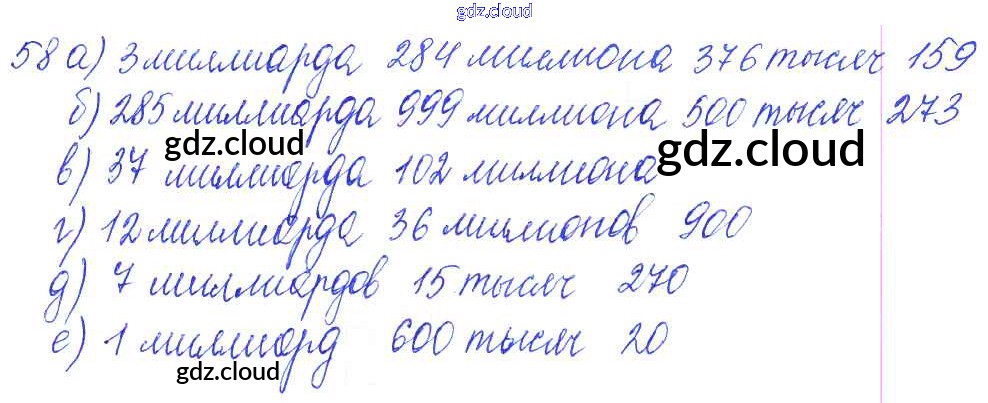 gdz.cloud
58 а) 3 миллиарда 284 миллиона 376 тысяч 159
б) 285 миллиарда 999 миллиона 500 тысяч 273
gdz.cloud gdz.cloud
в) 37 миллиарда 102 миллиона
г) 12 миллиарда 36 миллионов 900
д) 7 миллиардов 15 тысяч 270
е) 1 миллиард 600 тысяч 20
gdz.cloud